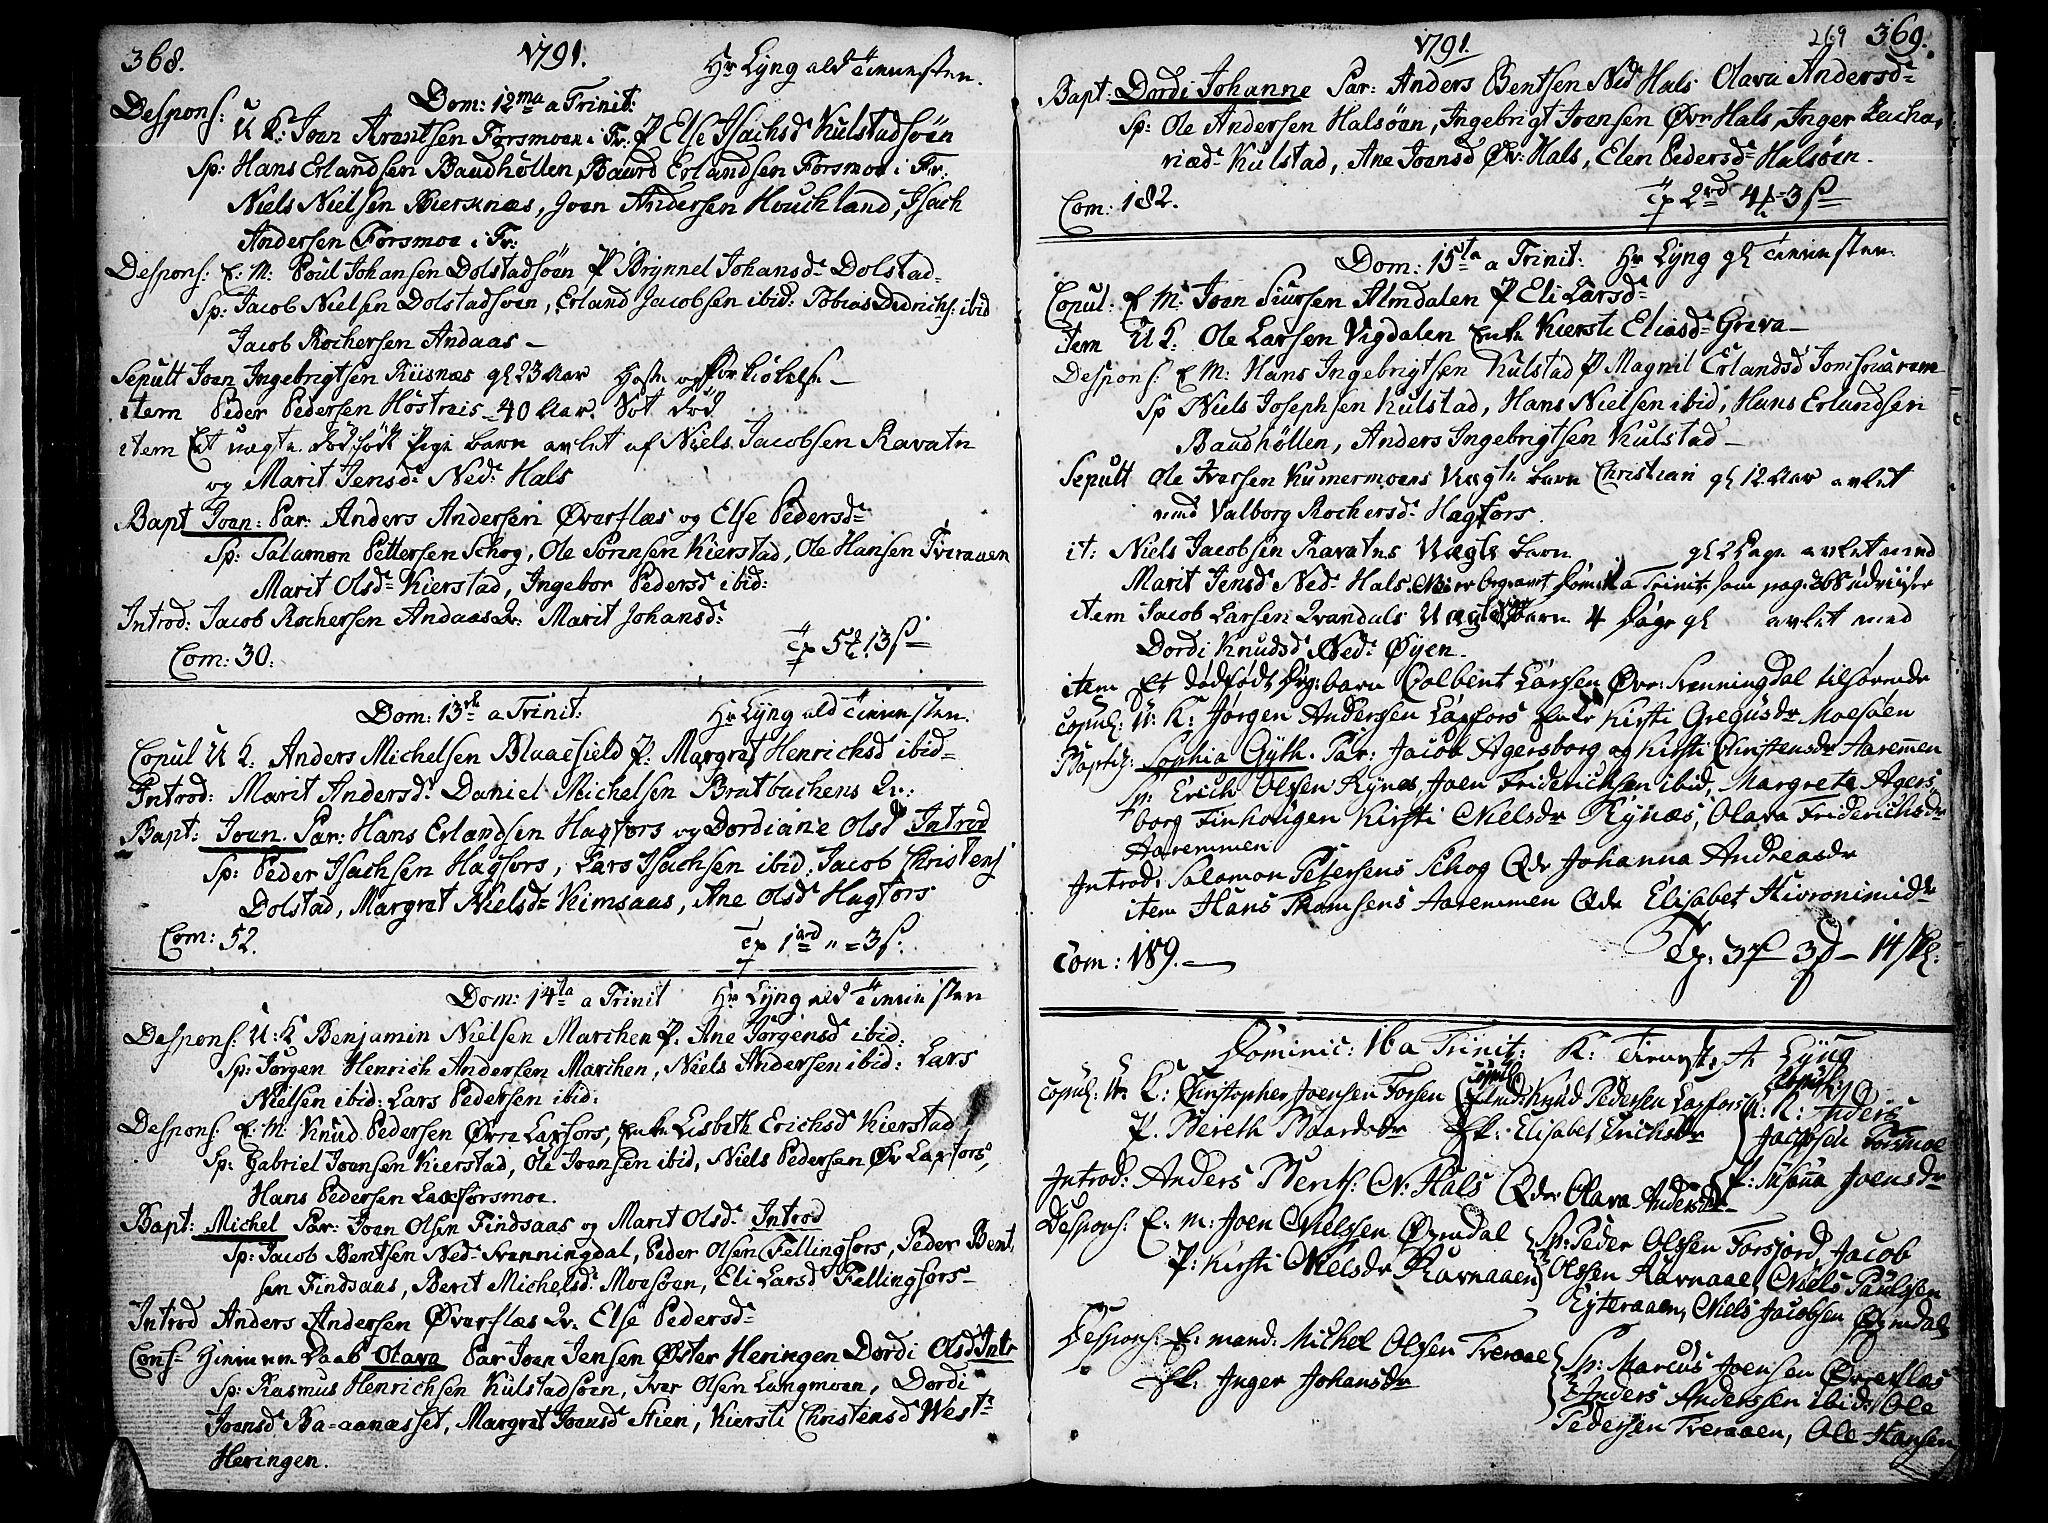 368. 1791. Hr Lyng ald Tienesten.
Dom: 12ma a Trinit:
Despons: U K: Joan Arantsen Forsmoen i Fr: P Else Isachsd Kulstadsöen
Sp: Hans Erlandsen Baudhollen, Baurd Erlandsen Forsmoe i Fr:
Niels Nielsen Biersnæs, Joen Andersen Houchland, Isach
Andersen Forsmoe i Fr:
Despons: E: M: Poul Johansen Dolstadsöen P Brynnel Johansd: Dolstad-
Sp: Jacob Nielsen Dolstadsöen, Erland Jacobsen ibid: Tobias Dedrichs: ibid
Jacob Rochersen Andaas -
Sepult Joen Ingebrigtsen Riisnæs gl 23 Aar Hoste og forkiölelse -
item Peder Pedersen Höstreis - 40 Aar. Sot död
item Et uægte dödfödt Pige barn avlet af Niels Jacobsen Ravatn
og Marit Jensd: Ned: Hals
Bapt Joen: Par: Anders Andersen Øverflæs og Else Pedersd:
Sp: Salamon Pettersen Schog, Ole Sörensen Kierstad, Ole Hansen Tveraaen
Marit Olsd: Kierstad, Ingebor Pedersd ibid:
Introd: Jacob Rochersen Andaas Qv: Marit Johansd:
Com: 30: Tp 5 13 ſ
Dom: 13 a Trinit: Hr Lyng ald Tienesten.
Copul U K: Anders Michelsen Blaaefield P: Margret Henrichsd ibid-
Introd: Marit Andersd: Daniel Michelsen Bratbachens Qv:
Bapt: Joen. Par: Hans Erlandsen Hagfors og Dordiane Olsd Introd
Sp: Peder Isachsen Hagfors, Lars Isachsen ibid, Jacob Christens
Dolstad, Margret Nielsd: Kimsaas, Ane Olsd Hagfors
Com: 52. Tp 1 " = 3 ſ:
Dom: 14ta a Trinit Hr Lyng ald Tienesten
Despons: U: K Benjamin Nielsen Marchen P. Ane Jörgensd ibid:
Sp: Jörgen Henrich Andersen Marchen, Niels Andersen ibid: Lars
Nielsen ibid: Lars Pedersen ibid:
Despons: E: M: Knud Pedersen Øvre Laxfors, Enke Lisbeth Erichsd Kierstad
Sp: Gabriel Joensen Kierstad, Ole Joensen ibid, Niels Pedersen Øv Laxfors,
Hans Pedersen Laxforsmoe.
Bapt: Michel Par: Joan Olsen Findsaas og Marit Olsd: Introd
Sp: Jacob Bentsen Ned: Svenningdal, Peder Olsen Fellingfors, Peder Bent,
sen Findsaas, Berit Michelsd: Moesöen, Eli Larsd Fellingfors-
Introd Anders Andersen Øverflæs Qv: Else Pedersd:
Conf= Hiemme Daab Olava Par Joen Jensen Øster Heringen Dordi Olsd Intr
Sp: Rasmus Henrichsen Kulstadsöen, Iver Olsen Langmoen, Dordi
Joensd Ba-aanæsset, Margret Joensd Stien, Kiersti Christensd West:
Heringen.
1791. 269 369.
Bapt: Dordi Johanne Par: Anders Bentsen Ned Hals Olava Andersd:
Sp: Ole Andersen Halsöen, Ingebrigt Joensen Øvr Hals, Inger Zacha,
riæd: Kulstad, Ane Joensd Øv: Hals, Elen Pedersd: Halsöen.
Com: 182. Tp 2 4 - 3 ſ
Dom: 15ta a Trinit: Hr Lyng gl Tienesten.
Copul: E M: Joen Siursen Almdalen P Eli Larsd:
item U K. Ole Larsen Vigdalen Enke Kiersti Eliasd: Greva -
Despons: E M: Hans Ingebrigtsen Kulstad P Magnil Erlandsd
Sp Niels Josephsen Kulstad, Hans Nielsen ibid, Hans Erlandsen
Baudhöllen, Anders Ingebrigtsen Kulstad -
Sepult Ole Iversen Kumermoens Uægte barn Christian gl 12 Aar avlet
med Valborg Rochersd: Hagfors.
it: Niels Jacobsen Ravatns Uægte barn gl 2 Dage avlet med
Marit Jensd Ned: Hals. a Trinit: som pag: 368 udviiser
item Jacob Larsen Qvandals Uægte barn 4 Dage gl avlet med
Dordi Knudsd Ned: Øyen.
item Et dödfödt Drg: barn Colbent Larsen Øvr: Svenningdal tilhörende
copul: U: K: Jörgen Anderssen Laxfors Enke Kirsti Gregusdr Moesöen
Baptiz: Sophia Gyth. Par: Jacob Agersborg og Kirsti Christensdr Aaremmen
Sp: Erich Olssen Rynes, Joen Friderichsen ibid, Margrete Agers,
borg Finholigen Kirsti Nielsdr Rynæs, Olava Friderichsdr
Aaremmen
Introd: Salomon Petersens Schog Qdr Johanna Andreasdr
item Hans Thomsens Aaremmen Qdr Elisabet Hieronimidr
Com: 189. Tp: 3 3 - 14 ſ
Dominic: 16 a Trinit: K: Tienest: A Lyng
copul: U: K: Christopher Joensen Forsen { Copul: Emd: Knud Pedersen Laxfors { Copul: U: K: Anders
P. Bereth Baardsdr Ek: Elisabet Erichsdr Jacobsen Forsmoe
Introd: Anders Bents: N: Hals Qdr Olava Andersdr P: Susana Joensdr
Despons: E: m: Joen Nielssen Øymdal { Sp: Peder Olssen Forsjord, Jacob
P: Kirsti Nielsdr Ravnaaen Olssen Ravnaae, Niels Paulssen
Eyteraaen, Niels Jacobsen Øymdal
Despons: E: mand: Michel Olssen Tveraae { Sp: Marcus Joensen Øvreflæs
Ek: Inger Johansdr Anders Anderssen ibid: Ole
Pedersen Tveraaen, Ole Hansen